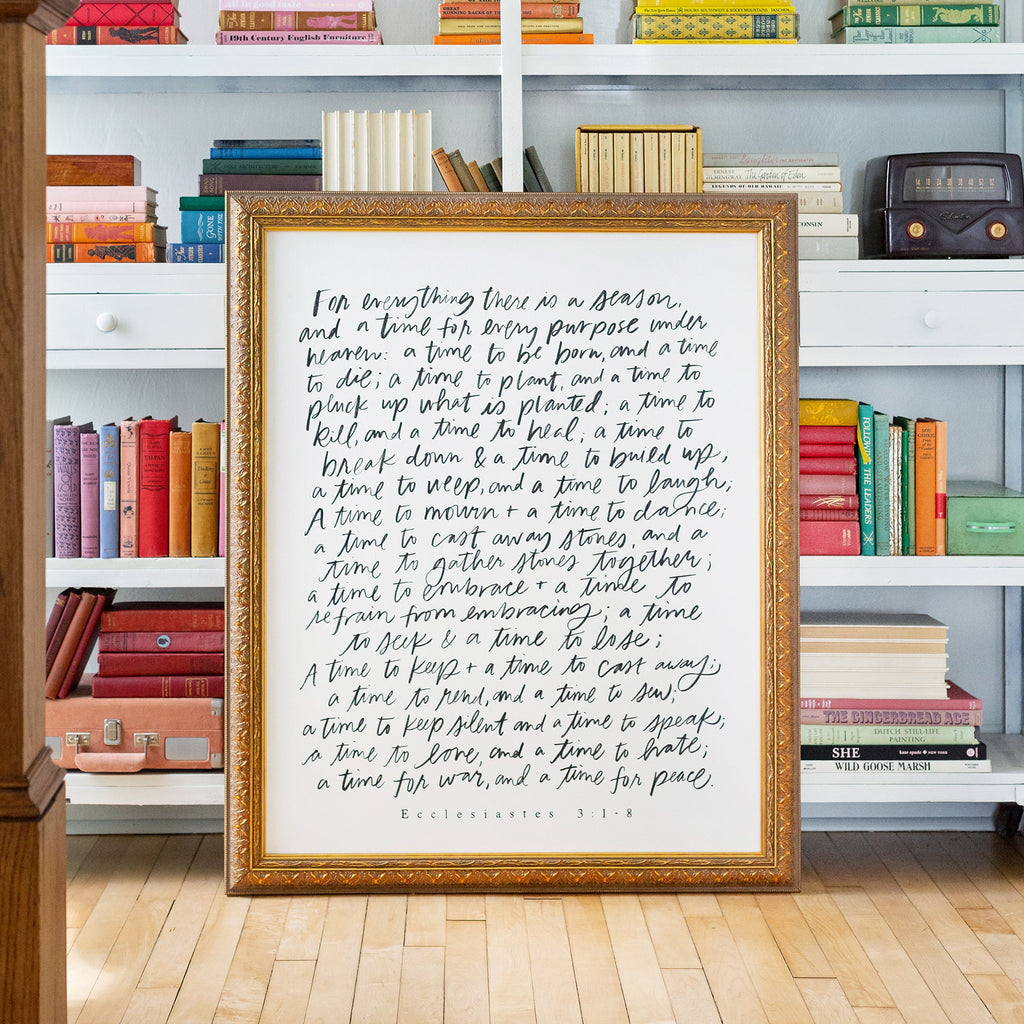 19th Century English Furniture
GREAT
RUNNING BACKS OF THE
GONE
WITH THE
ERNEST
HEMINGWAY The Garden of Eden
LEGENDS OF OLD HAWAII
For everything there is a season,
and a time for every purpose under
heaven: a time to be born, and a time
to die; a time to plant, and a time to
pluck up what is planted; a time to
kill, and a time to heal; a time to
break down & a time to build up;
a time to weep, and a time to laugh;
A time to mourn + a time to dance;
a time to cast away stones, and a
time to gather stones together;
a time to embrace + a time to
refrain from embracing; a time
to seek & a time to lose;
A time to keep + a time to cast away;
a time to rend, and a time to sew;
a time to keep silent and a time to speak;
a time to love, and a time to hate;
a time for war, and a time for peace.
Ecclesiastes 3:1-8
TAI-PAN
FOLLOW THE LEADERS
THE GINGERBREAD AGE
DUTCH STILL-LIFE
PAINTING
SHE kate spade NEW YORK
WILD GOOSE MARSH